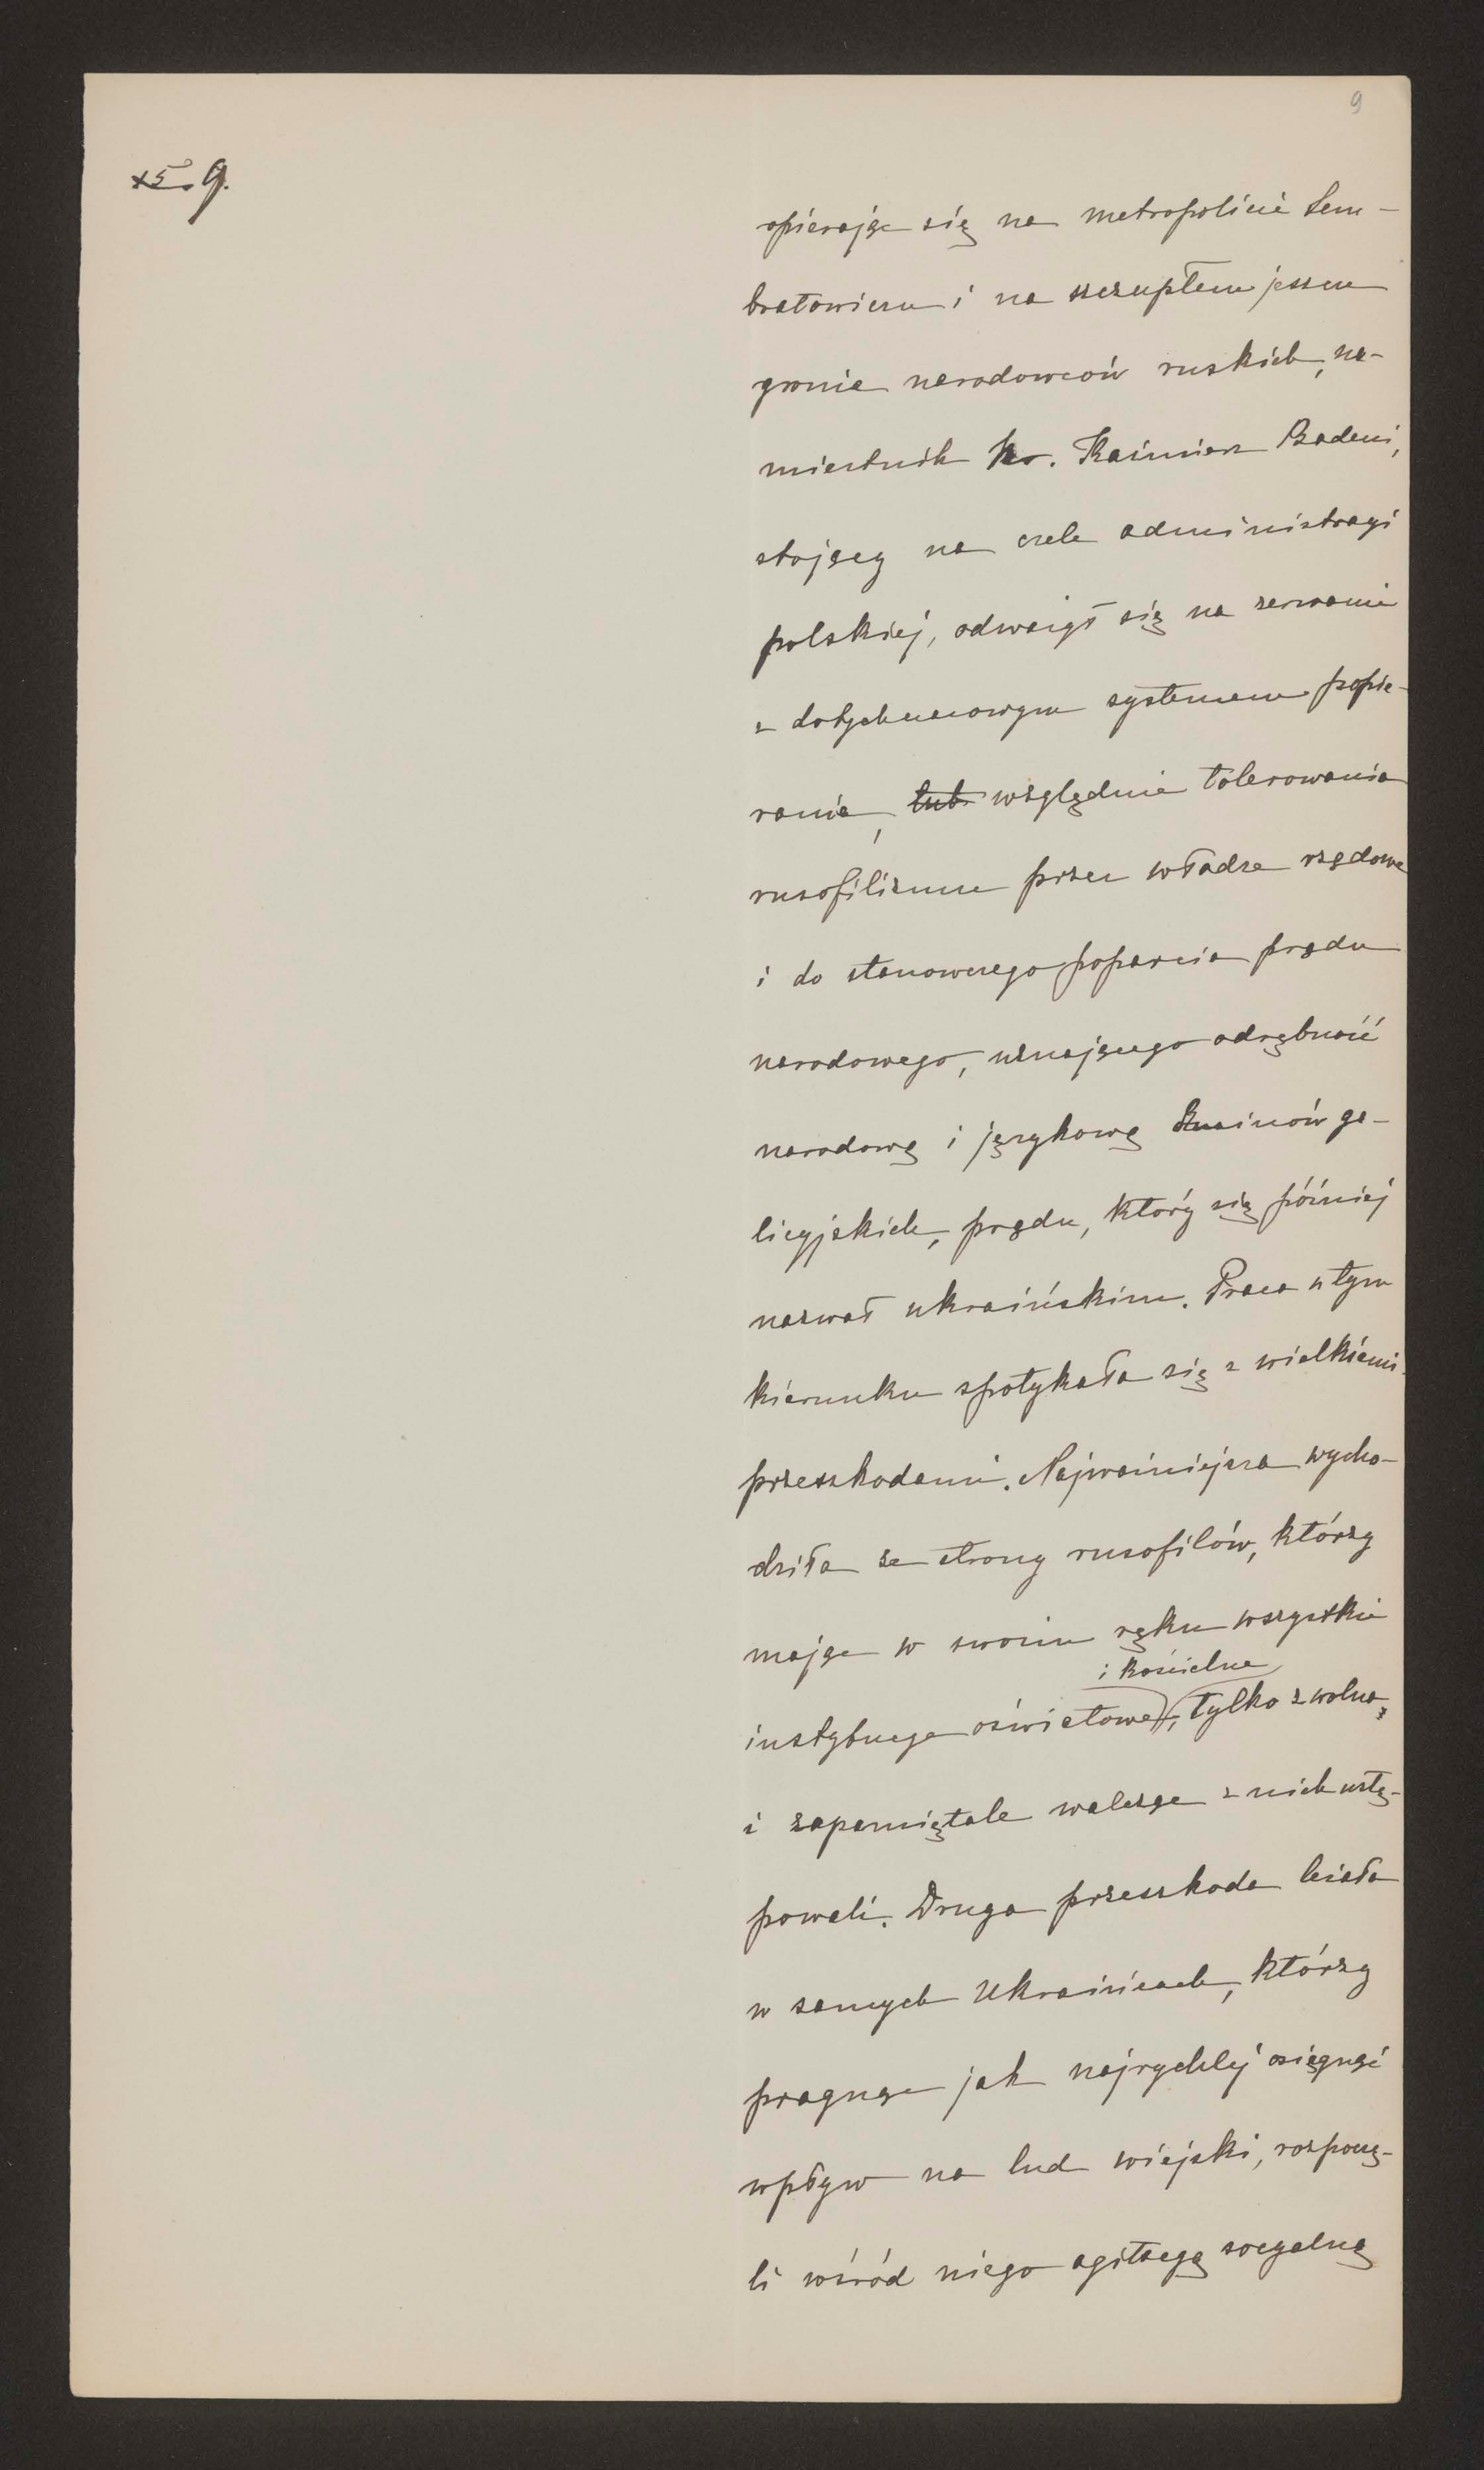 9
9.
opierając się na metropolicie Sem-
bratowiczu i na szczupłem jeszcze
gronie narodowców ruskich, na-
miestnik hr. Kaźmierz Badeni,
stojący na czele administracyi
polskiej, odważył się na zerwanie
z dotychczasowym systemem popie-
rania, lub względnie tolerowania
rusofilizmu przez władze rządowe
i do stanowczego poparcia prądu
narodowego, uznającego odrębność
narodową i językową Rusinów ga-
licyjskich, prądu, który się później
nazwał ukraińskim. Praca w tym
kierunku spotykała się z wielkiemi
przeszkodami. Najważniejsza wycho-
dziła ze strony rusofilów, którzy
mając w swoim ręku wszystkie
i kościelne
instytucye oświatowe, tylko zwolna
i zapamiętale walcząc z nich ustę-
powali. Druga przeszkoda leżała
w samych Ukraińcach, którzy
pragnąc jak najrychlej osiągnąć
wpływ na lud wiejski, rozpoczę-
li wśród niego agitacyę socyalną